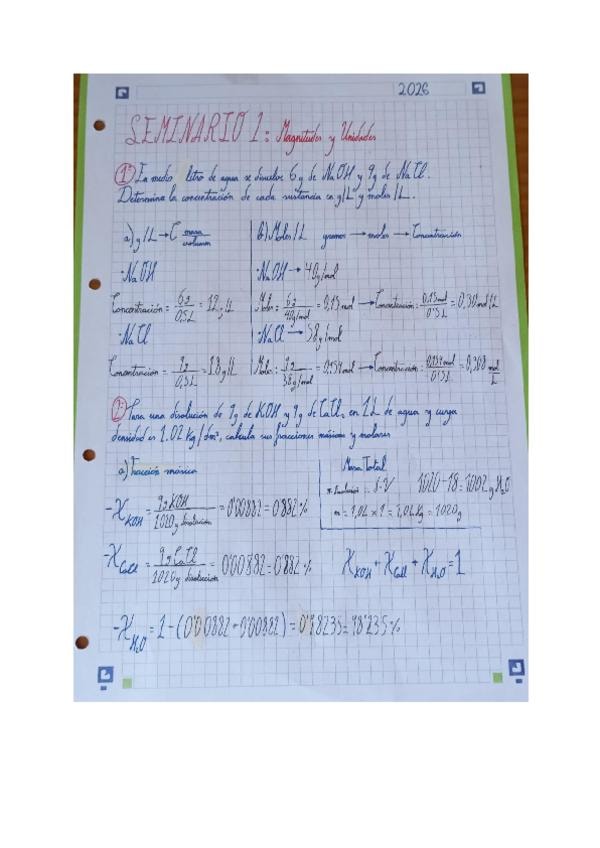 2026
SEMINARIO 1: Magnitudes y Unidades
1º En medio litro de agua se disuelve 6g de NaOH y 9g de NaCl.
Determina la concentración de cada sustancia en g/L y moles/L.
a) g/L → C masa/volumen
b) Moles/L gramos → moles → Concentración
·NaOH
·NaOH → 40g/mol
Concentración = 6g/0,5L = 12 g/L
Moles: 6g/40g/mol = 0,15mol → Concentración: 0,15mol/0'5L = 0,30mol/L
·NaCl
·NaCl → 58g/mol
Concentración = 9g/0,5L = 18g/L
Moles: 9g/58g/mol = 0,154mol → Concentración: 0,154mol/0'5L = 0,308 mol/L
2º Para una disolución de 9g de KOH y 9g de CaCl₂ en 1L de agua y cuya
densidad es 1.02 Kg/dm³, calcula sus fracciones másicas y molares
a) Fracción másica
Masa Total
m = 1,02 x 1 = 1,02Kg = 1020g
1020-18=1002g H₂O
-X KOH = 9g KOH/1020g disolución = 0'00882 = 0'882%
-X CaCl = 9g CaCl/1020g disolución = 0'00882 = 0'882%
X KOH + X CaCl + X H₂O = 1
-X H₂O = 1 - (0'00882 + 0'00882) = 0'98235 = 98'235%